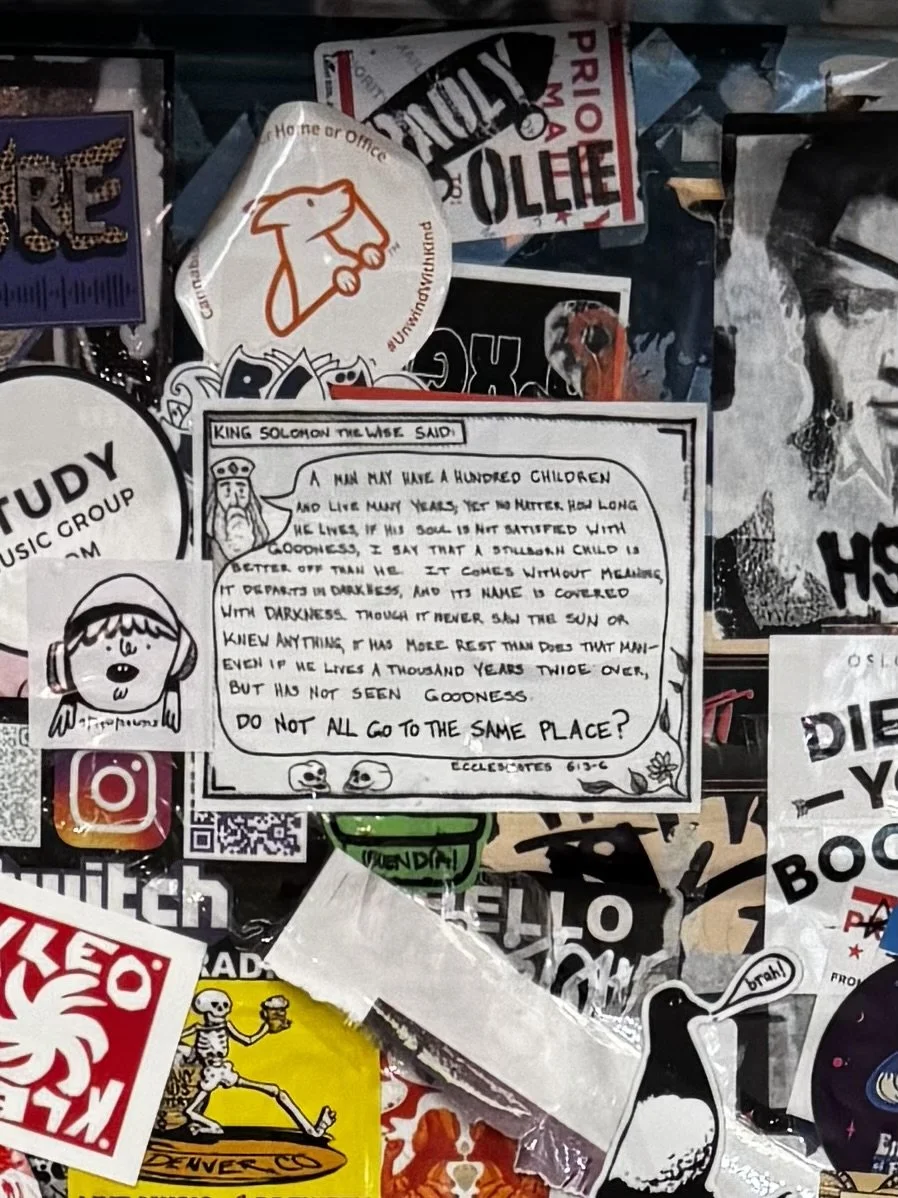 PAULY
PRIORITY
MAIL
TO:
OLLIE
r Home or Office
Cannabi
#UnwindWithKind
TM
RE
TUDY
USIC GROUP
OM
KING SOLOMON THE WISE SAID:
A MAN MAY HAVE A HUNDRED CHILDREN
AND LIVE MANY YEARS; YET NO MATTER HOW LONG
HE LIVES, IF HIS SOUL IS NOT SATISFIED WITH
GOODNESS, I SAY THAT A STILLBORN CHILD IS
BETTER OFF THAN HE. IT COMES WITHOUT MEANING,
IT DEPARTS IN DARKNESS, AND ITS NAME IS COVERED
WITH DARKNESS. THOUGH IT NEVER SAW THE SUN OR
KNEW ANYTHING, IT HAS MORE REST THAN DOES THAT MAN—
EVEN IF HE LIVES A THOUSAND YEARS TWICE OVER,
BUT HAS NOT SEEN GOODNESS.
DO NOT ALL GO TO THE SAME PLACE?
ECCLESIASTES 6:3-6
HS
OSLO
DIE
YO
BOO
PR
FROM
twitch
HELLO
brah!
KLEO.
RAD
DENVER CO